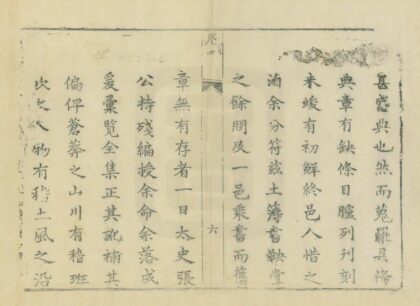 甚盛典也然而蒐羅具備
典章有缺條目臚列刊刻
未竣有初鮮終邑人惜之
洎余分符茲土簿書鞅掌
之餘問及一邑乘書而舊
六
章無有存者一日太史張
公持殘編授余命余落成
爰彙覽全集正其訛補其
偏俾蒼莽之山川有稽班
次之人物有稽土風之沿